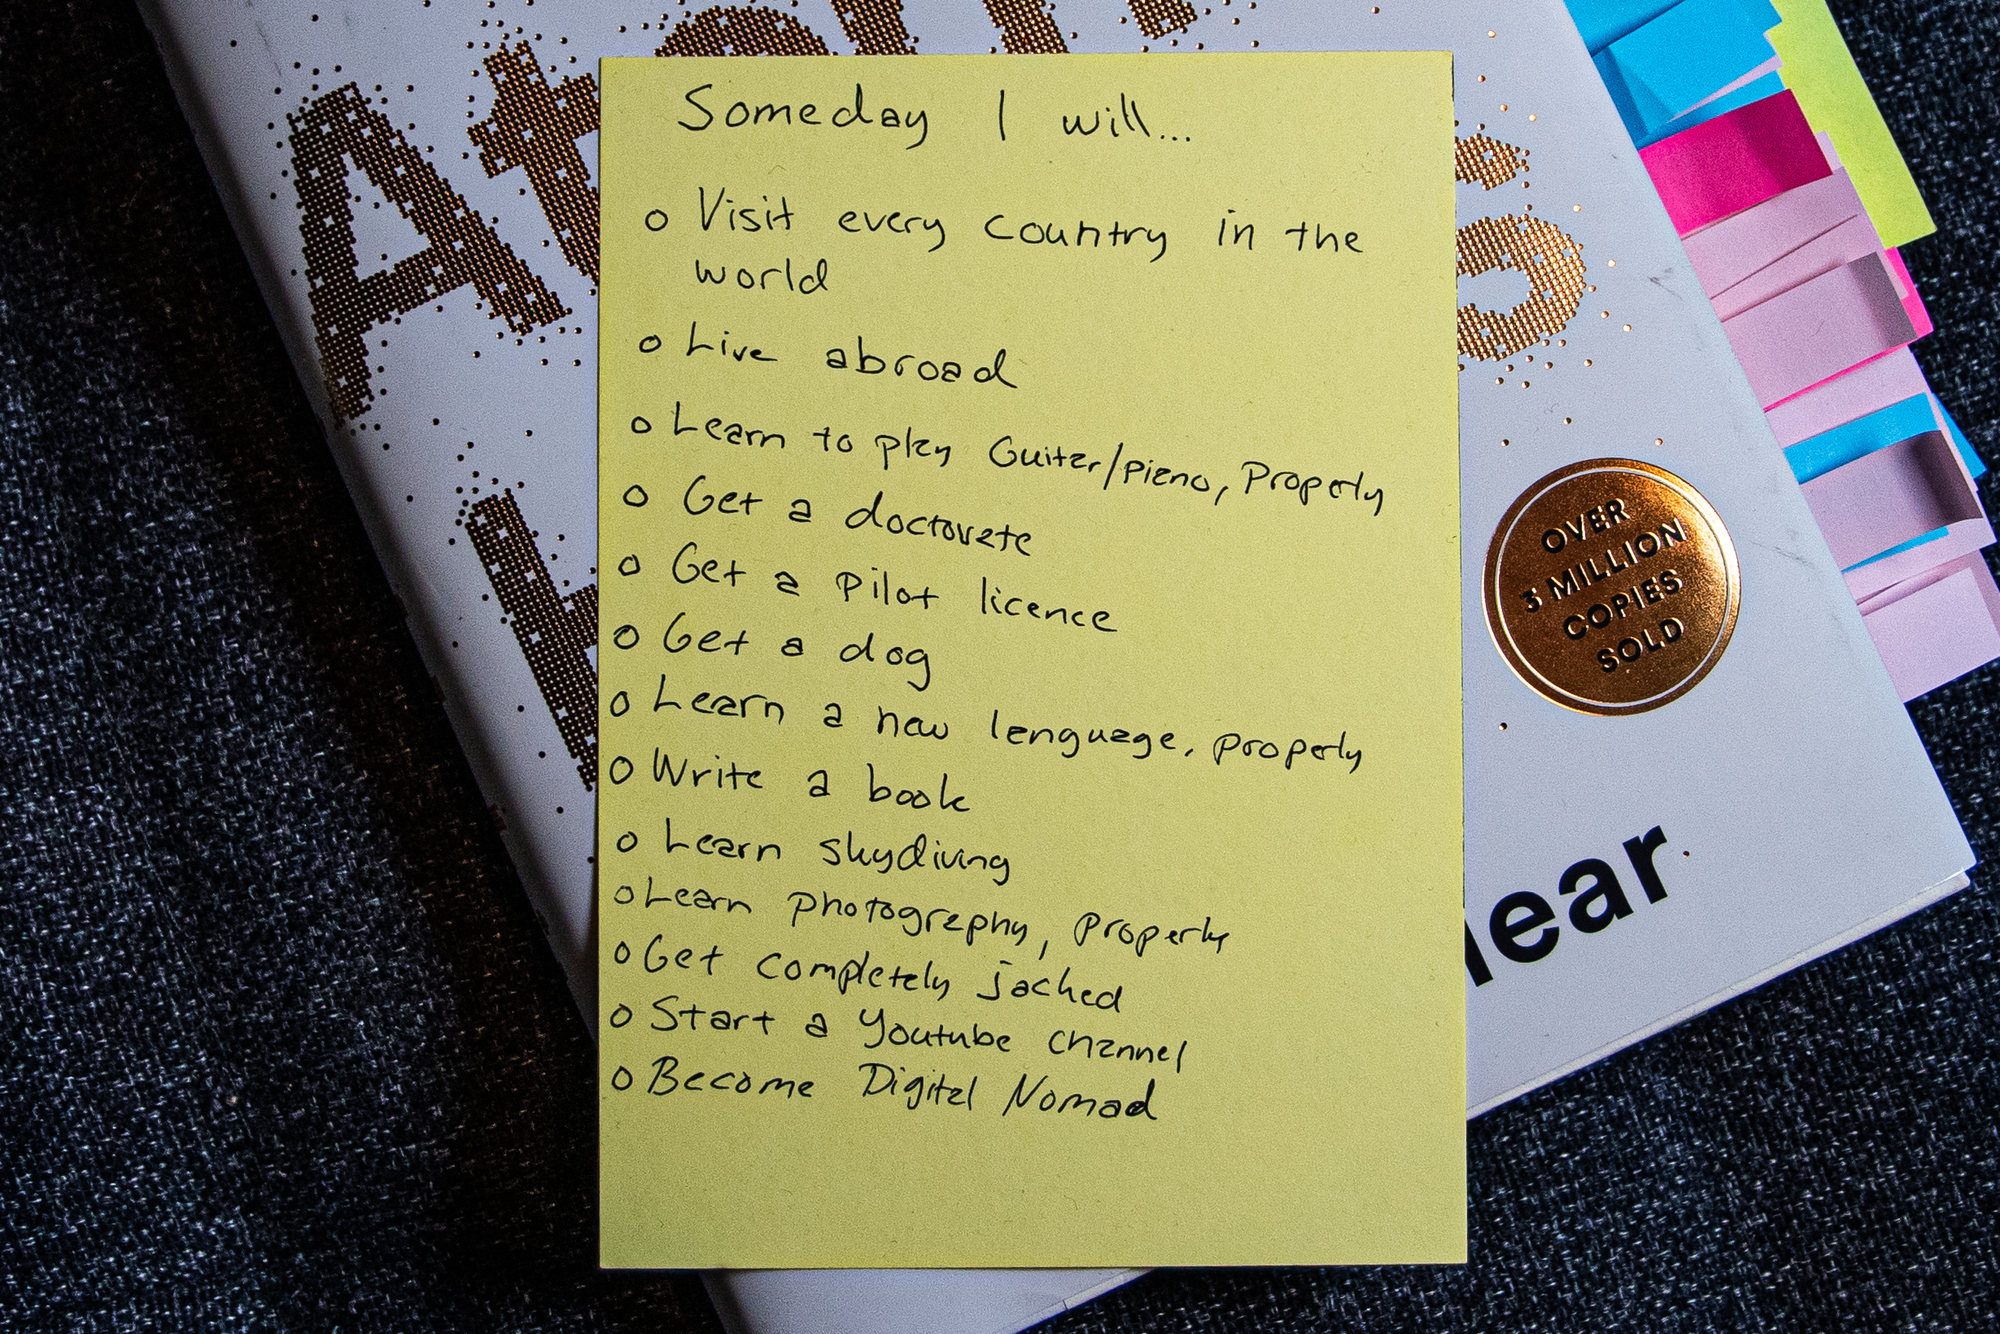 Atomic
Someday I will...
o Visit every country in the
world
o Live abroad
o Learn to play Guitar/piano, Properly
o Get a doctorate
o Get a pilot licence
o Get a dog
o Learn a new language, properly
o Write a book
o Learn skydiving
o Learn photography, properly
o Get completely jacked
o Start a Youtube channel
o Become Digital Nomad
OVER
3 MILLION
COPIES
SOLD
lear